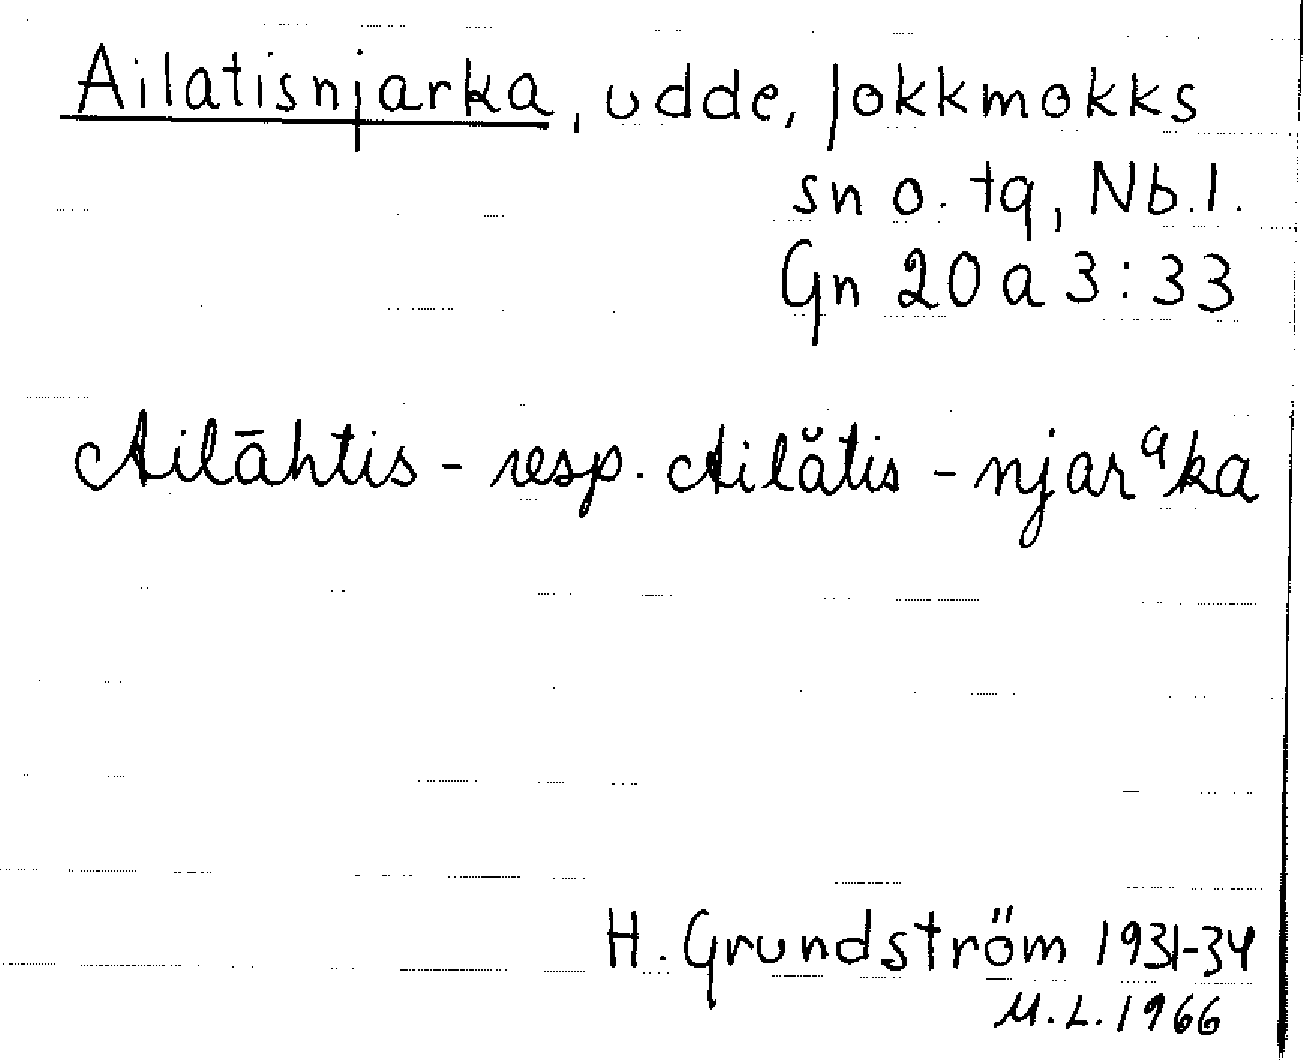 Ailatisnjarka, udde, Jokkmokks
sn o. tg, Nb.l.
Gn 20 a 3:33
Ailāhtis- resp. Ailătis-njarᵃka
H. Grundström 1931-34
M.L. 1966